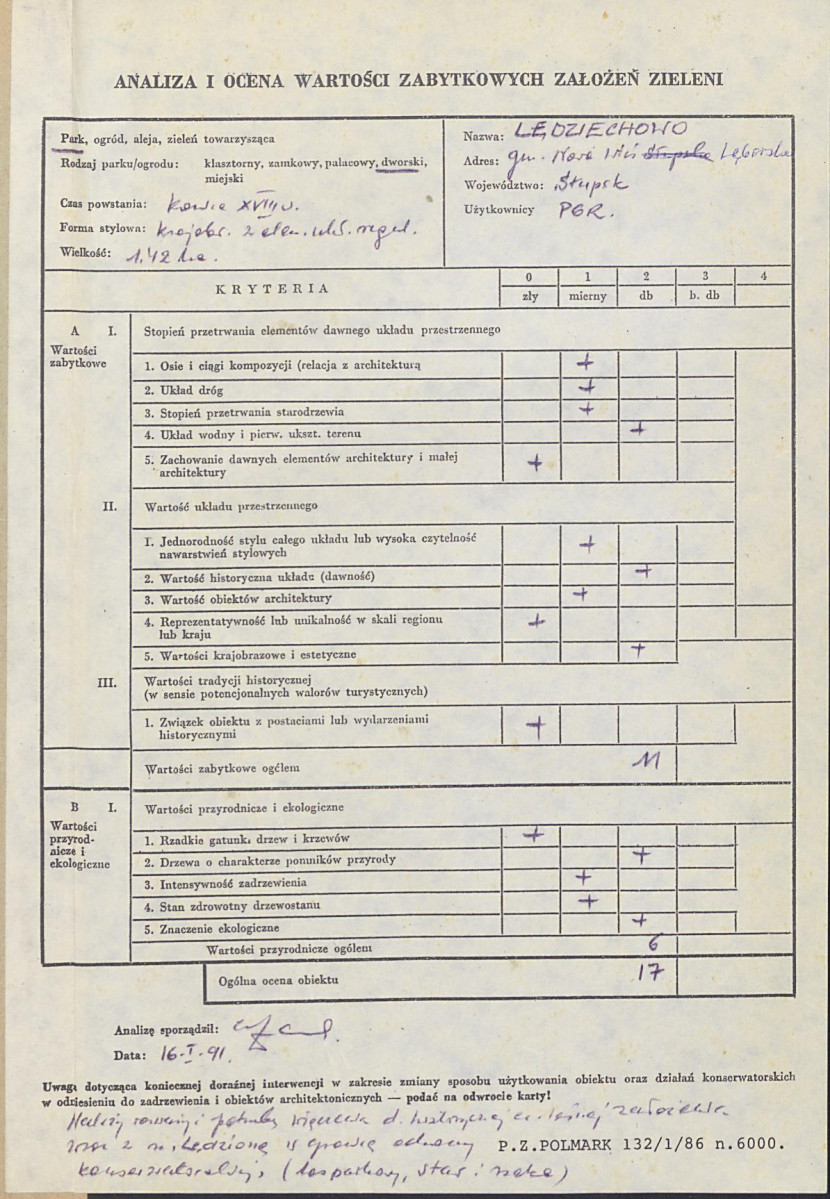 ANALIZA I OCENA WARTOŚCI ZABYTKOWYCH ZAŁOŻEŃ ZIELENI
Park, ogród, aleja, zieleń towarzysząca
Rodzaj parku/ogrodu: klasztorny, zamkowy, pałacowy, dworski,
miejski
Czas powstania: koniec XVIII w.
Forma stylowa: krajobr. z elem. ukł. regul.
Wielkość: 1.42 ha.
Nazwa: LĘDZIECHOWO
Adres: gm. Nowa Wieś Słupska Lęborska
Województwo: Słupsk
Użytkownicy PGR.
KRYTERIA
0 1 2 3 4
zły mierny db b. db
A I. Stopień przetrwania elementów dawnego układu przestrzennego
Wartości
zabytkowe
1. Osie i ciągi kompozycji (relacja z architekturą +
2. Układ dróg +
3. Stopień przetrwania starodrzewia +
4. Układ wodny i pierw. ukszt. terenu +
5. Zachowanie dawnych elementów architektury i małej +
architektury
II. Wartość układu przestrzennego
1. Jednorodność stylu całego układu lub wysoka czytelność +
nawarstwień stylowych
2. Wartość historyczna układu (dawność) +
3. Wartość obiektów architektury +
4. Reprezentatywność lub unikalność w skali regionu +
lub kraju
5. Wartości krajobrazowe i estetyczne +
III. Wartości tradycji historycznej
(w sensie potencjonalnych walorów turystycznych)
1. Związek obiektu z postaciami lub wydarzeniami +
historycznymi
Wartości zabytkowe ogółem 11
B I. Wartości przyrodnicze i ekologiczne
Wartości
przyrod-
nicze i
ekologiczne
1. Rzadkie gatunki drzew i krzewów +
2. Drzewa o charakterze pomników przyrody +
3. Intensywność zadrzewienia +
4. Stan zdrowotny drzewostanu +
5. Znaczenie ekologiczne +
Wartości przyrodnicze ogółem 6
Ogólna ocena obiektu 17
Analizę sporządził:
Data: 16-I-91.
Uwaga dotycząca koniecznej doraźnej interwencji w zakresie zmiany sposobu użytkowania obiektu oraz działań konserwatorskich
w odniesieniu do zadrzewienia i obiektów architektonicznych — podać na odwrocie karty!
Należy i potrzebę d. historycznej założenia
z ochrony
P.Z.POLMARK 132/1/86 n.6000.
konserwatorskiej, (las parkowy, staw i rzeka)